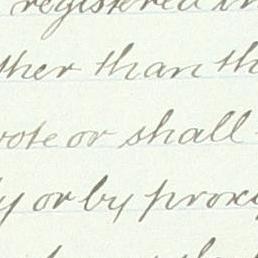 registered in
ther than th
vote or shall
y or by proxy